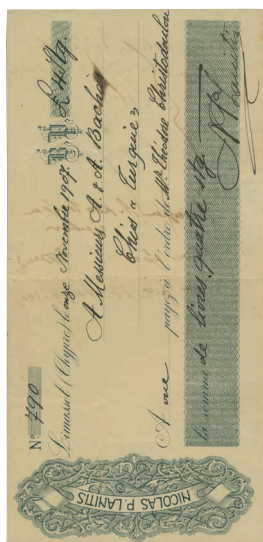 NICOLAS P. LANITIS
No 790
B.P. £ 4 stg
Limassol (Chypre) le onze Novembre 1907
A Messieurs A & A.
Chio en Turquie
A vue payez à l'ordre de Mr Théodore Christodoulou
la somme de livres quatre stg
NPLanitis